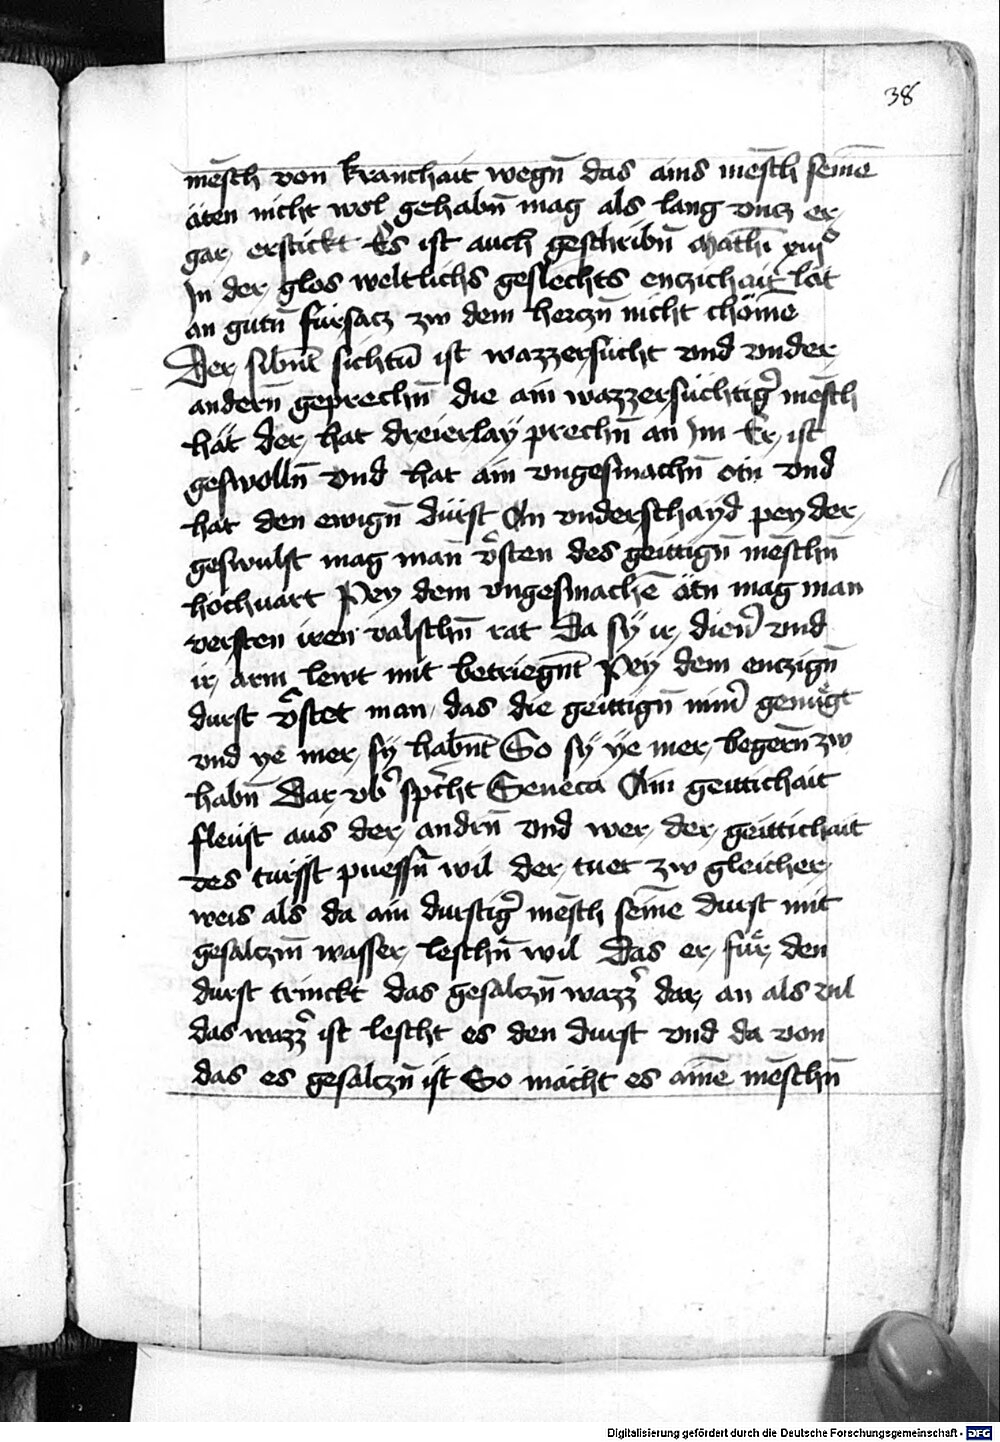 38
mēsch von kranchait wegn̄ das ains mēsch seinē
äten nicht wol gehabn̄ mag als lang vncz er
gar erstickt Es ist auch geschribn̄ Mathei xiijo
In der glos weltlichs geslechts enczichait lat
an gutn̄ fürsacz zw dem herczn̄ nicht chömē
Der sibn̄t sichtū ist wazzersucht vnd vnder
andern̄ geprechn̄ die ain wazzersüchtig̉ mēsch
hät der hat dreierlaÿ prechn̄ an Im Er ist
geswolln̄ vnd hat ain vngesmachn̄ otn vnd
hat den ewign̄ dürst An vnderschayd pey der
geswulst mag man̄ v̉sten des geittign̄ mēschn̄
hochuart Pey dem vngesmachē ätn mag man
versten iren valschn̄ rat Da sÿ ir dien̉ vnd
ir arm lewt mit betriegn̄t Pey dem enczign̄
durst v̉stet man das die geittign̄ nim̉ genügt
vnd ye mer sÿ habn̄t So sÿ ÿe mer begern̄ zw
habn̄ Dar vb̉ sp̉cht Seneca Ain geittichait
fleüst aus der andrn̄ vnd wer der geittichait
des tursst puessn̄ wil der tuet zw gleicher
weis als da ain durstig̉ mēsch seinē durst mit
gesalczm̄ wasser leschn̄ wil Das er für den
durst trinckt das gesalczn̄ wazz̉ dar an als vil
das wazz̉ ist lescht es den durst vnd da von
das es gesalczn̄ ist So mächt es ainē mēschn̄
Digitalisierung gefördert durch die Deutsche Forschungsgemeinschaft - DFG